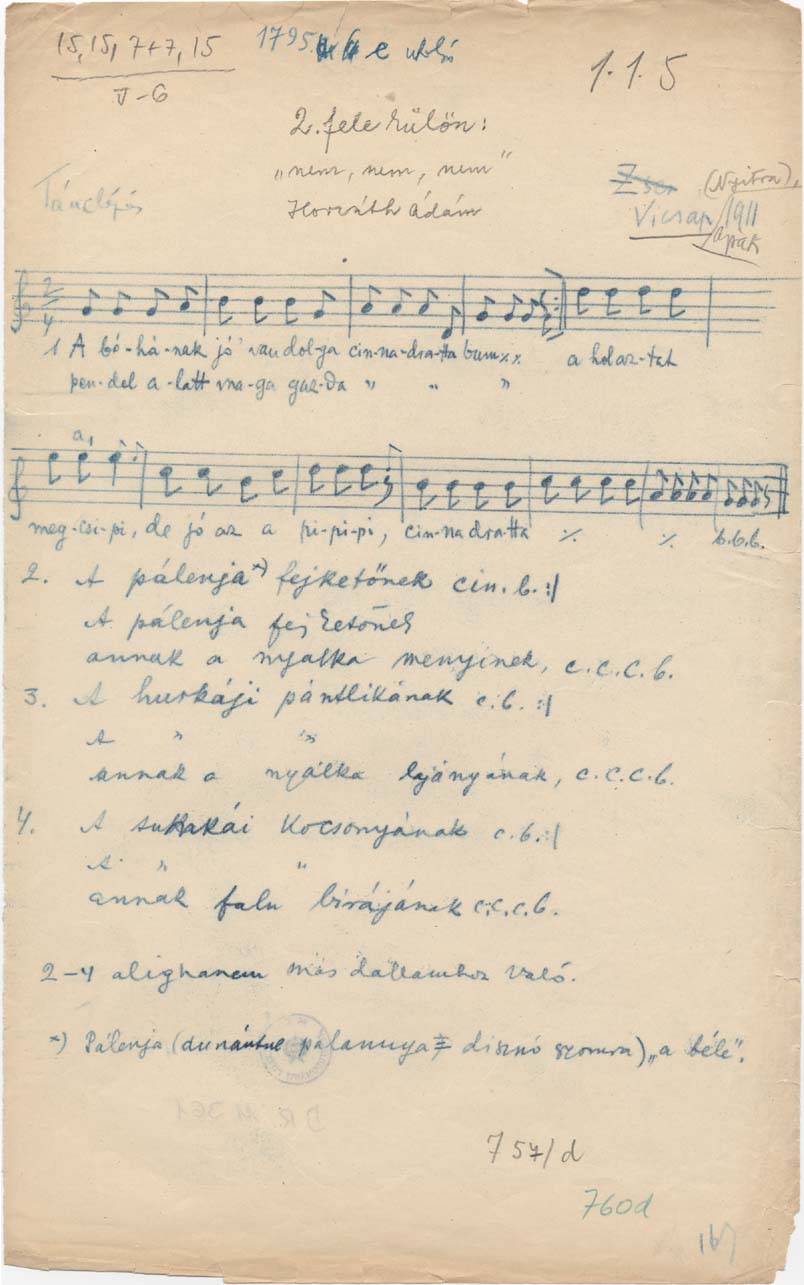 15, 15, 7+7, 15
V-6
1795. e utolsó
1.1.5
2. fele külön:
„nem, nem, nem"
Horváth Ádám
Tánclépés
(Nyitra),
Vicsap, 1911
apáti
2
4
1 A bó-há-nak jó van dol-ga cin-na-drat-ta bum ٪ ٪ a holaz-tat
pen-del a-latt ma-ga gaz-da " " "
a,
meg-csi-pi, de jó az a pi-pi-pi, cin-na dra-tta ٪ ٪ b.b.b.
2. A pálenja*) fejketőnek cin. b. :|
A pálenja fejketőnek
annak a nyalka menyinek, c.c.c.b.
3. A hurkáji pántlikának c.b. :|
A " "
annak a nyalka lyányának, c.c.c.b.
4. A kocsonyának c.b. :|
A " "
annak falu bírájának c.c.c.b.
2-4 alighanem más dallamhoz való.
*) Pálenja (dunántul disznó szomra) „a bélé".
757/d
760d